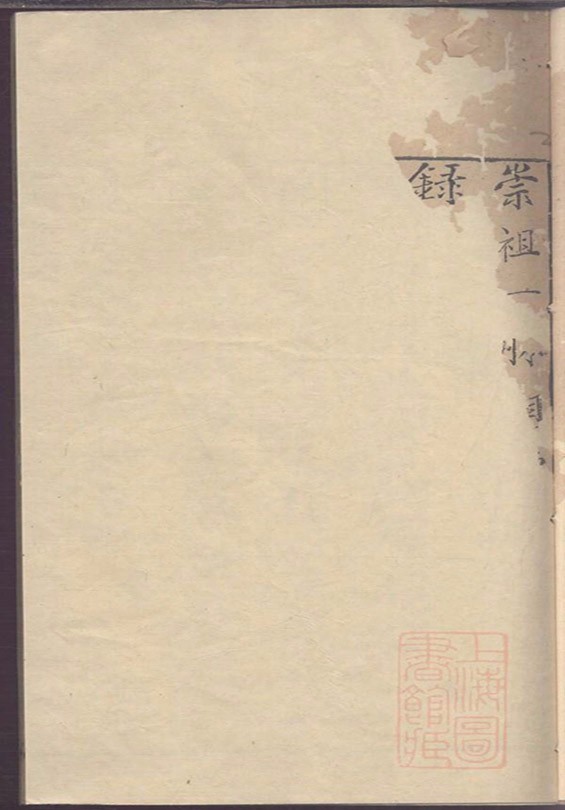 崇祖一
録
上海圖
書館藏